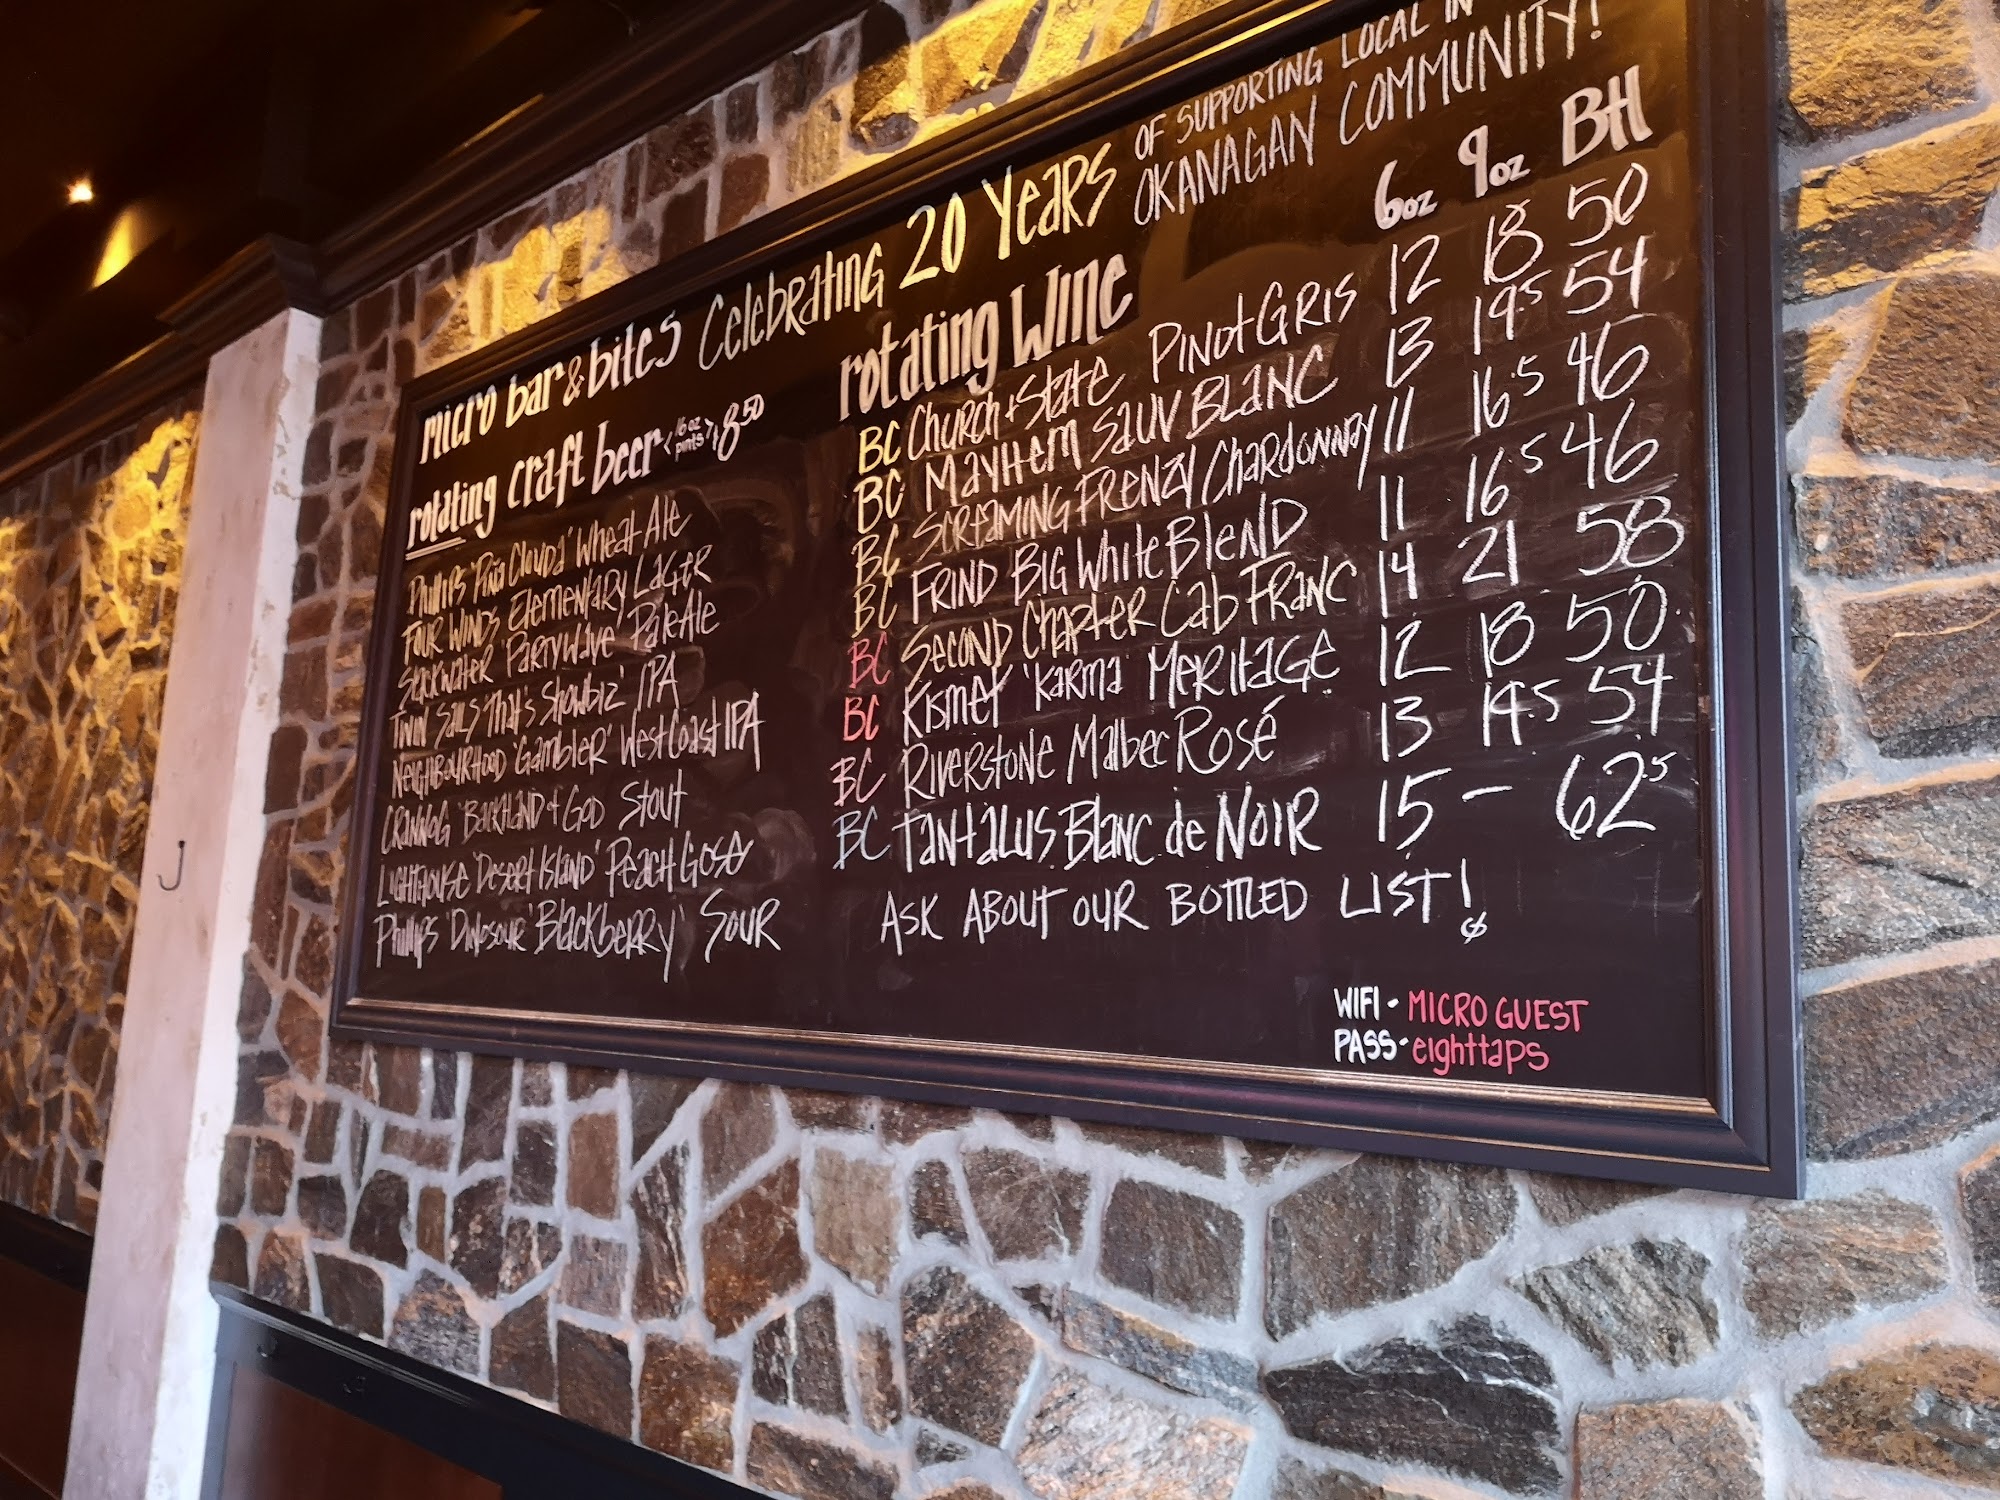 micro bar & bites Celebrating 20 Years OF SUPPORTING LOCAL IN
OKANAGAN COMMUNITY!
rotating craft beer <16oz pints> 8.50
Phillips 'Piña Clouda' Wheat Ale
FOUR WINDS Elementary LAGER
Slackwater 'Partywave' Pale Ale
TWIN SAILS 'That's Showbiz' IPA
NEIGHBOURHOOD 'Gambler' West Coast IPA
CRANNOG 'Backhand of GOD' Stout
LIGHTHOUSE 'Desert Island' Peach Gose
Phillips 'Dinosour' Blackberry' SOUR
rotating wine 6oz 9oz Btl
BC Church + State PINOT GRIS 12 18 50
BC MAYHEM SAUV BLANC 13 19.5 54
BC SCREAMING FRENZY Chardonnay 11 16.5 46
BC FRIND BIG White Blend 11 16.5 46
BC SECOND Chapter Cab FRANC 14 21 58
BC Kismet 'Karma' MERITAGE 12 18 50
BC Riverstone Malbec Rosé 13 19.5 54
BC TANTALUS Blanc de NOIR 15 – 62.5
ASK ABOUT OUR BOTTLED LIST!
WIFI - MICRO GUEST
PASS - eighttaps